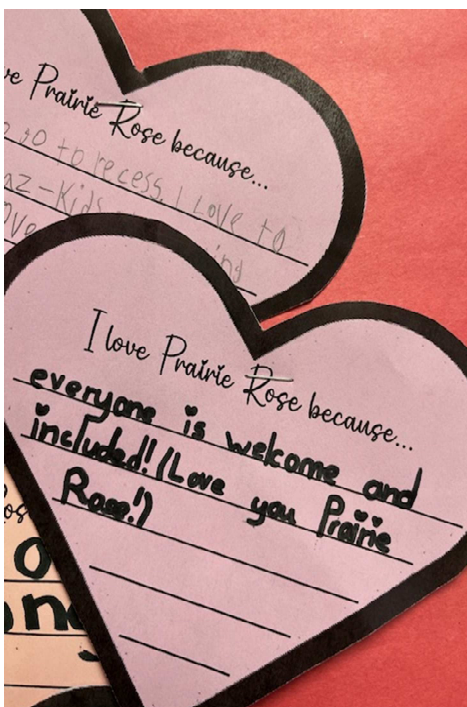 ve Prairie Rose because...
go to recess. I Love to
az-Kids
ove
I love Prairie Rose because...
everyone is welcome and
included! (Love you Prairie
Rose!)